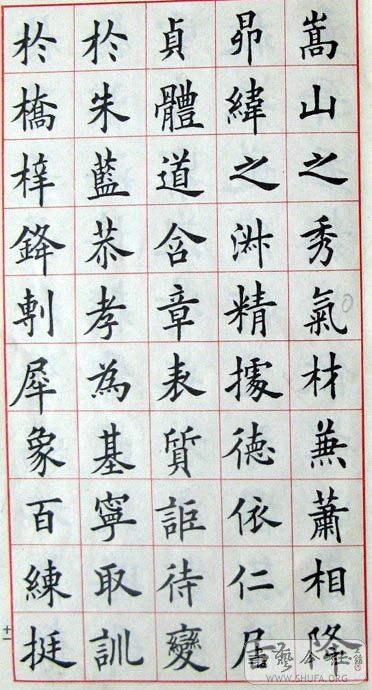 嵩山之秀氣材兼蕭相降
昴緯之淑精據德依仁居
貞體道含章表質詎待變
於朱藍恭孝為基寧取訓
於橋梓鋒剸犀象百練挺
十一
WWW.SHUFA.ORG